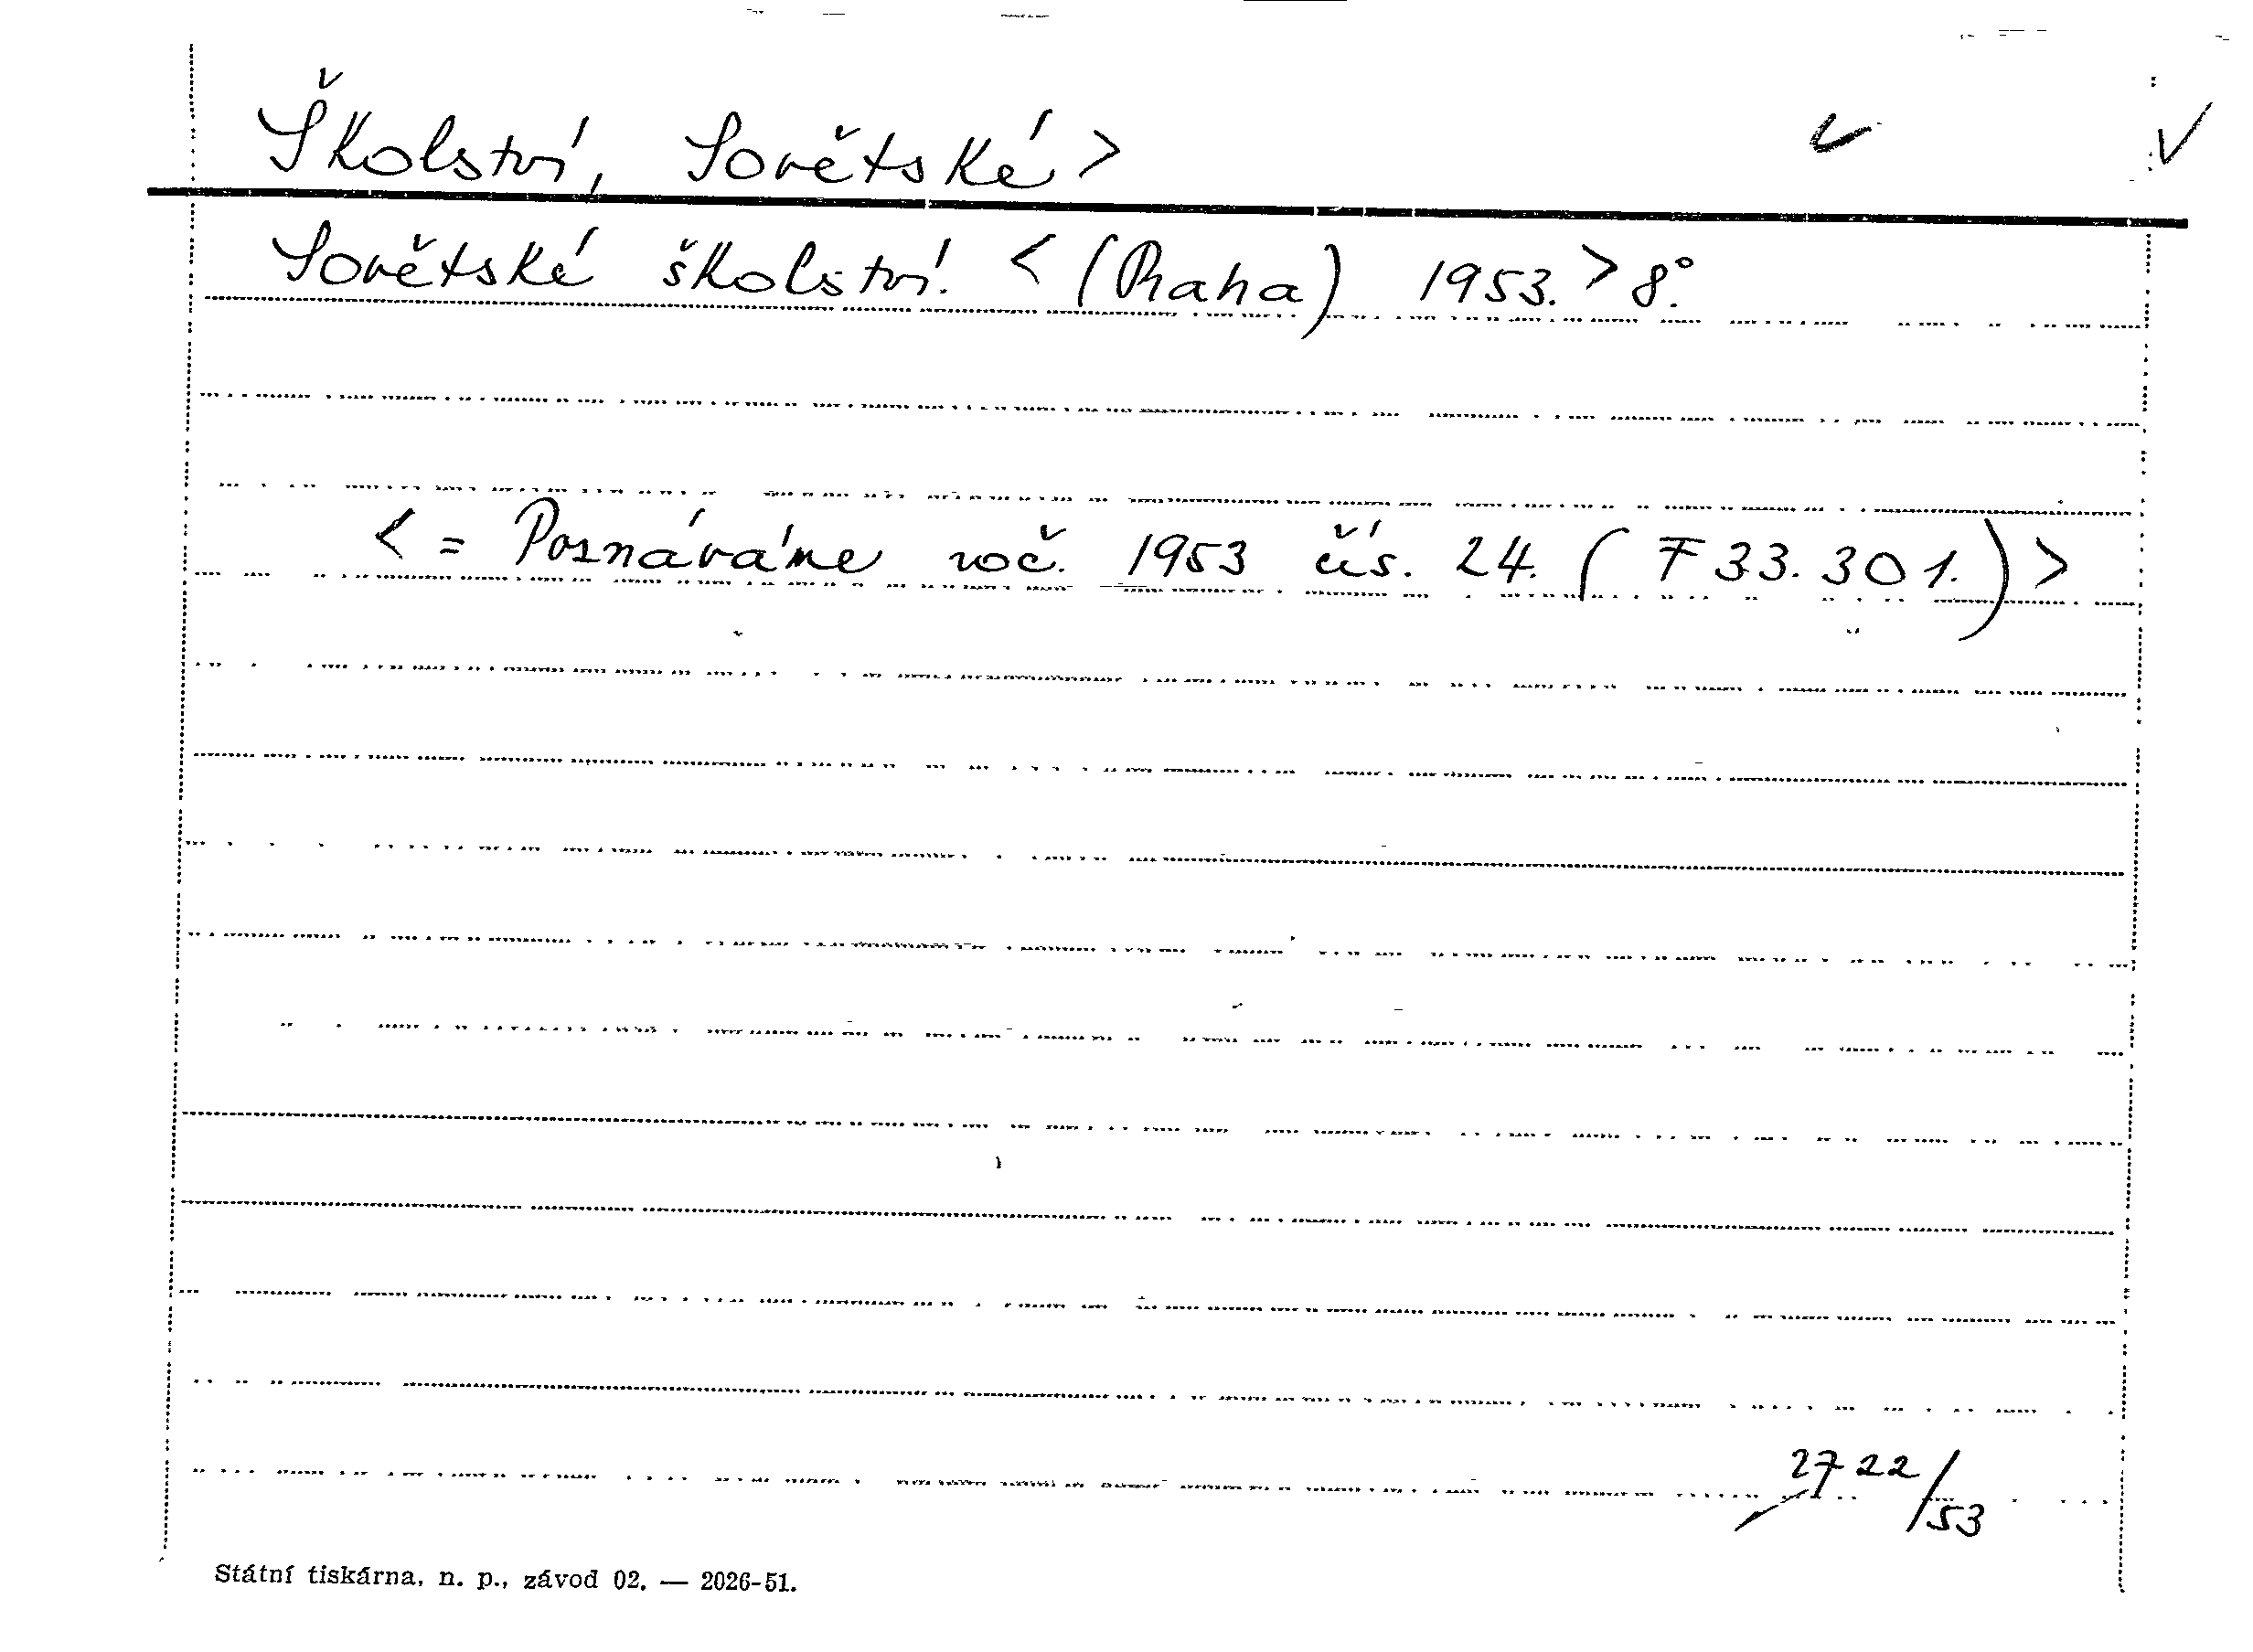 Školství, Sovětské >
Sovětské školství. < (Praha) 1953. > 8°.
< = Poznáváme roč. 1953 čís. 24. ( F 33.301. ) >
2722/53
Státní tiskárna, n. p., závod 02. — 2026-51.